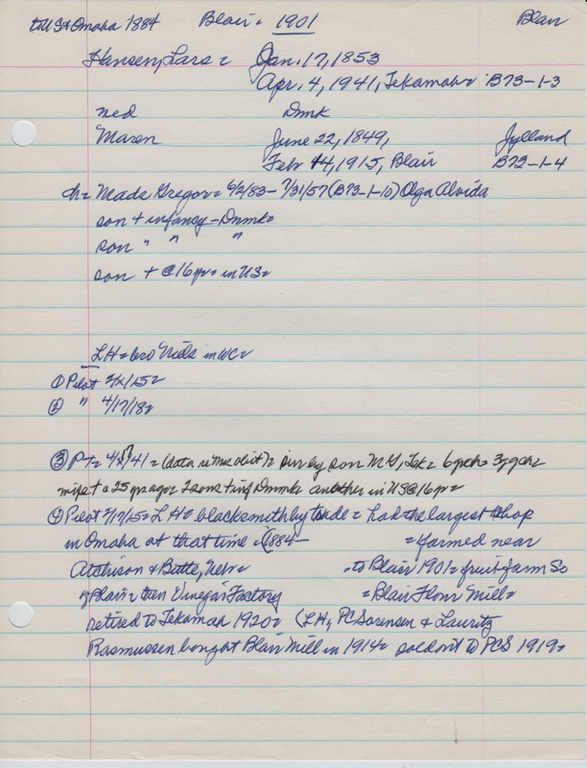 to US & Omaha 1884 Blair = 1901 Blair
Hansen, Lars = Jan. 17, 1853
Apr. 4, 1941, Tekamah = B73-1-3
med Dmk
Maren June 22, 1849, Jylland
Feb 4, 1915, Blair B73-1-4
ch = Mads Gregor = 6/2/83 - 7/31/57 (B73-1-10) Olga Alvida
son + infancy - Dnmk =
son " " "
son + @ 16 yr = in US =
LH = bro Niels in WC =
① Pilot 2/ /15 =
② " 4/17/18 =
③ PT = 4/ /41 = (data re Mrs obit) = surv by son MG, Tek = 6 gch = 3 ggch =
wife + = 25 yrs ago = 2 sons + inf Dnmk another in US @ 16 yr =
④ Pilot 2/17/15 = LH = blacksmith by trade = had the largest shop
in Omaha at that time = (1884- = farmed near
Atchison & Butte, Neb = = to Blair 1901 = fruit farm So
of Blair = ran Vinegar Factory = Blair Flour Mill =
retired to Tekamah 1920 = (LH, PC Sorensen & Lauritz
Rasmussen bought Blair Mill in 1914 = sold out to PCS 1919 =